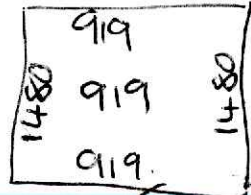 919
1480
919
1480
919.